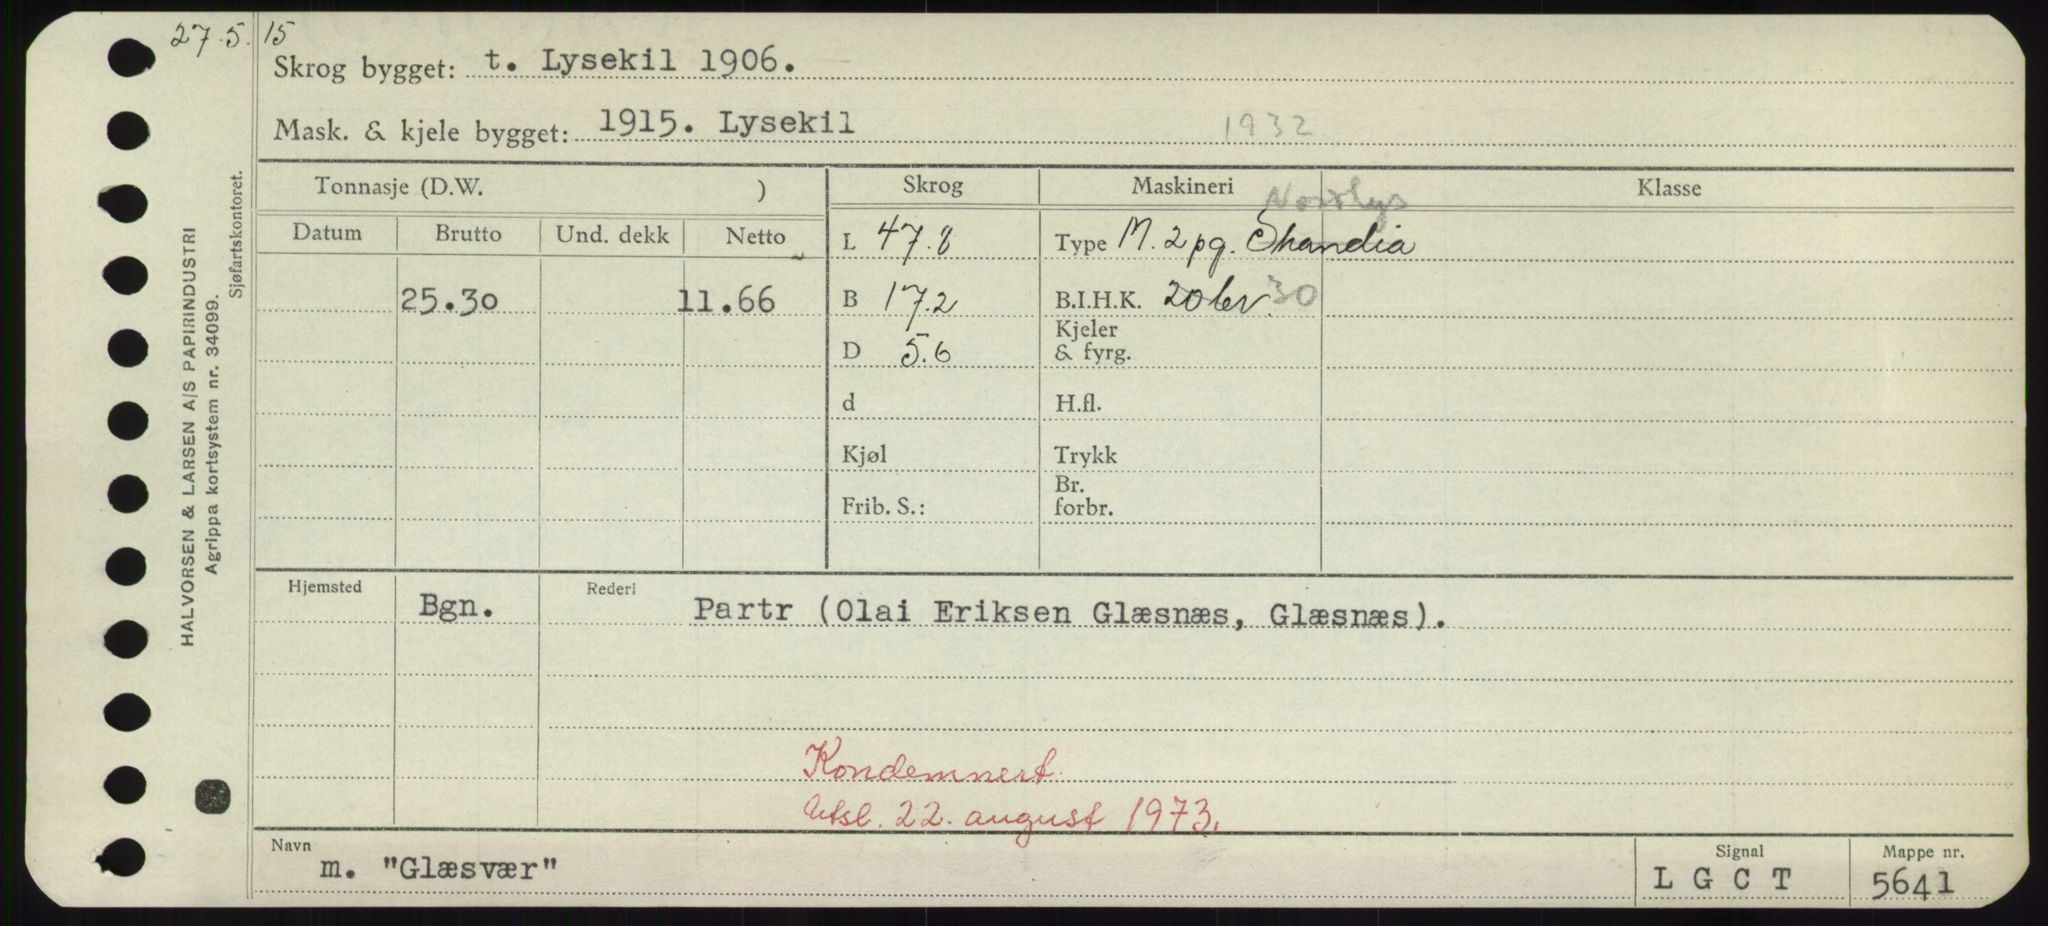 27.5.15
Skrog bygget: t. Lysekil 1906.
Mask. & kjele bygget: 1915. Lysekil 1932
Tonnasje (D.W. ) Skrog Maskineri Klasse
Norlys
Datum Brutto Und. dekk Netto L 47.8 Type M. 2 pg. Skandia
25.30 11.66 B 17.2 B.I.H.K. 20 30
Kjeler
D 5.6 & fyrg.
d H.fl.
Kjøl Trykk
Br.
Frib. S.: forbr.
Hjemsted Bgn. Rederi Partr (Olai Eriksen Glæsnæs, Glæsnæs).
Kondemnert
Utsl. 22. august 1973.
Navn Signal Mappe nr.
m. "Glæsvær" L G C T 5641
HALVORSEN & LARSEN A/S PAPIRINDUSTRI
Agrippa kortsystem nr. 34099.
Sjøfartskontoret.